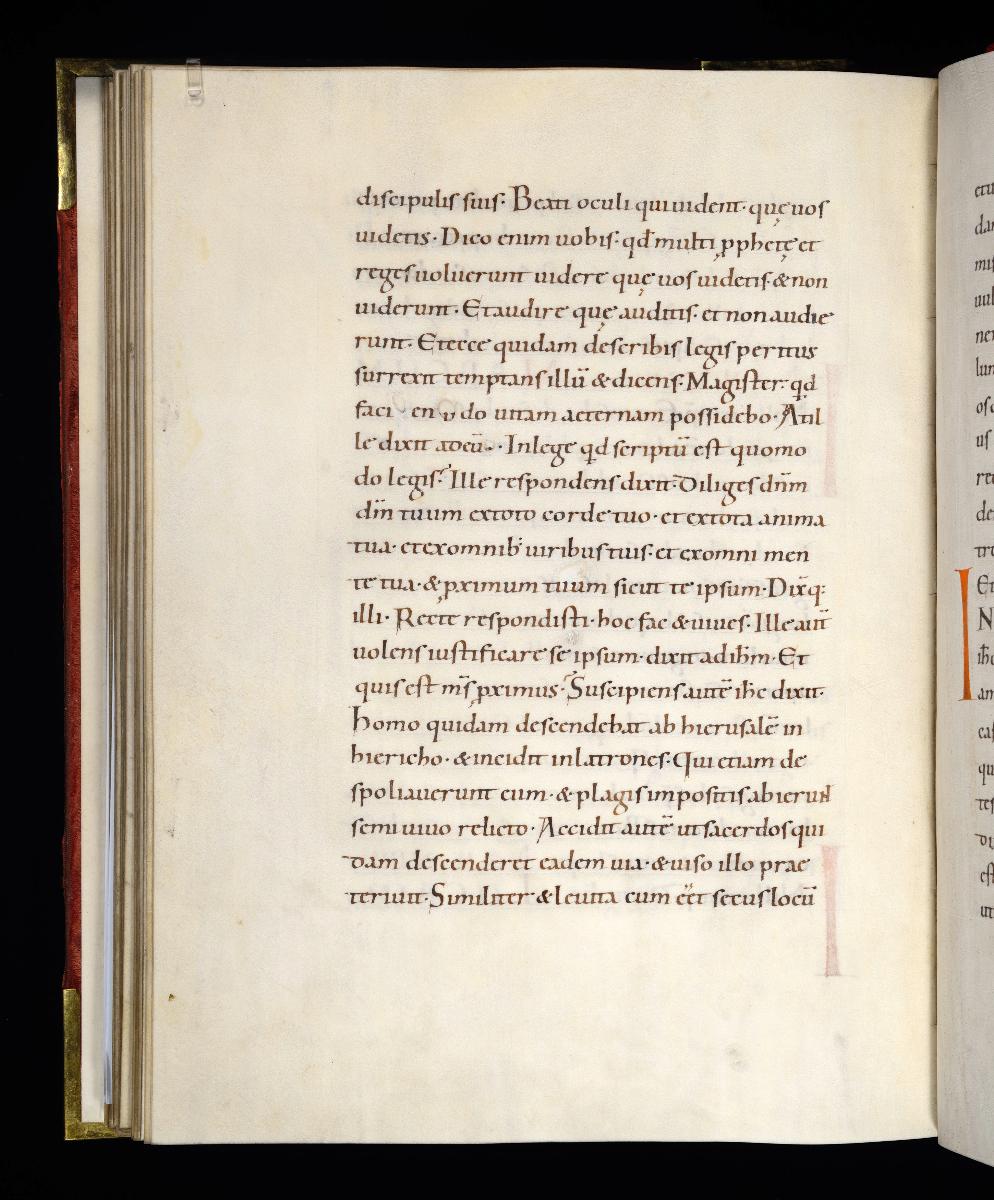 discipulis suis· Beati oculi qui uident· quę uos
uidetis· Dico enim uobis· qđ multi ꝓphetę et
reges uoluerunt uidere quę uos uidetis· & non
uiderunt· Et audire quę auditis· et non audie
runt· Et ecce quidam de scribis legis peritus
surrexit temptans illū & dicens· Magister· qd
faci en do uitam aeternam possidebo· At il
le dixit ad eū· In lege qd scriptū est quomo
do legis? Ille respondens dixit· Diliges dnm̄
dm̄ tuum ex toto corde tuo· et ex tota anima
tua· et ex omnib; uiribus tuis· et ex omni men
te tua· & ꝓximum tuum sicut te ipsum· Dixq:
illi· Recte respondisti· hoc fac & uiues· Ille aut̄
uolens iustificare se ipsum· dixit ad ihm̄· Et
quis est ms̄ ꝓximus? Suscipiens autē ihc̄ dixit·
homo quidam descendebat ab hierusalē in
hiericho· & incidit in latrones· Qui etiam de
spoliauerunt eum· & plagis impositis abierunt
semi uiuo relicto· Accidit autē ut sacerdos qui
dam descenderet eadem uia· & uiso illo prae
teriuit· Similiter & leuita cum eēt secus locū